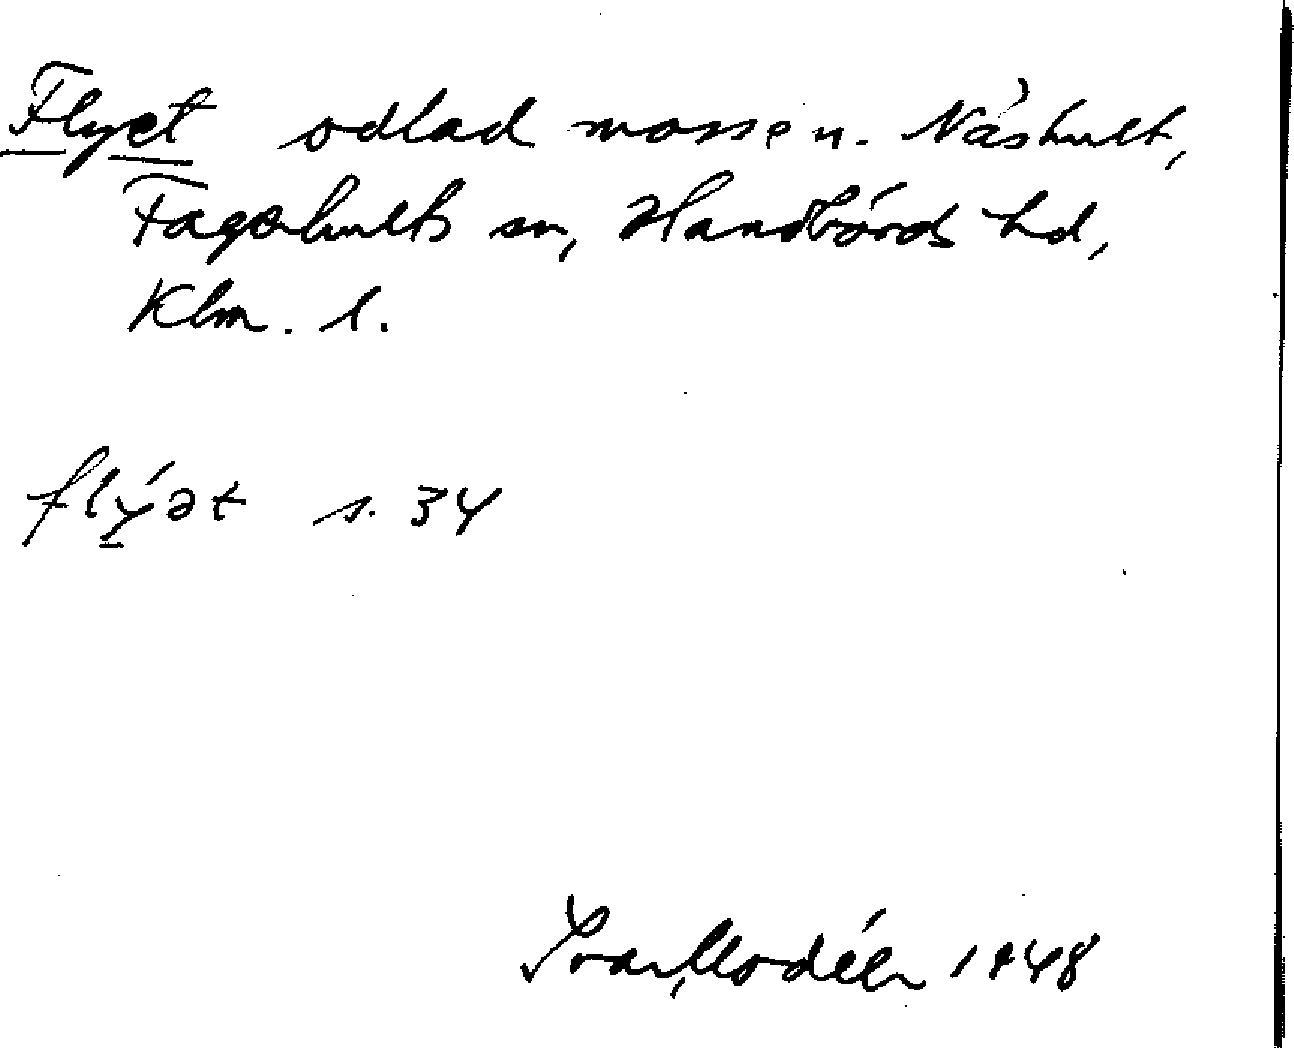 Flyet odlad mosse n. Näshult,
Fagerhults sn, Handbörds hd,
Klm. l.
flýət s. 34
Ivar Modéer 1948